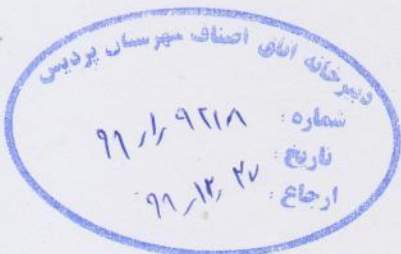 دبیرخانه اتاق اصناف شهرستان پردیس
شماره : ۹۹/۱/۹۲۱۸
تاریخ : ۹۹/۱۲/۲۷
ارجاع :